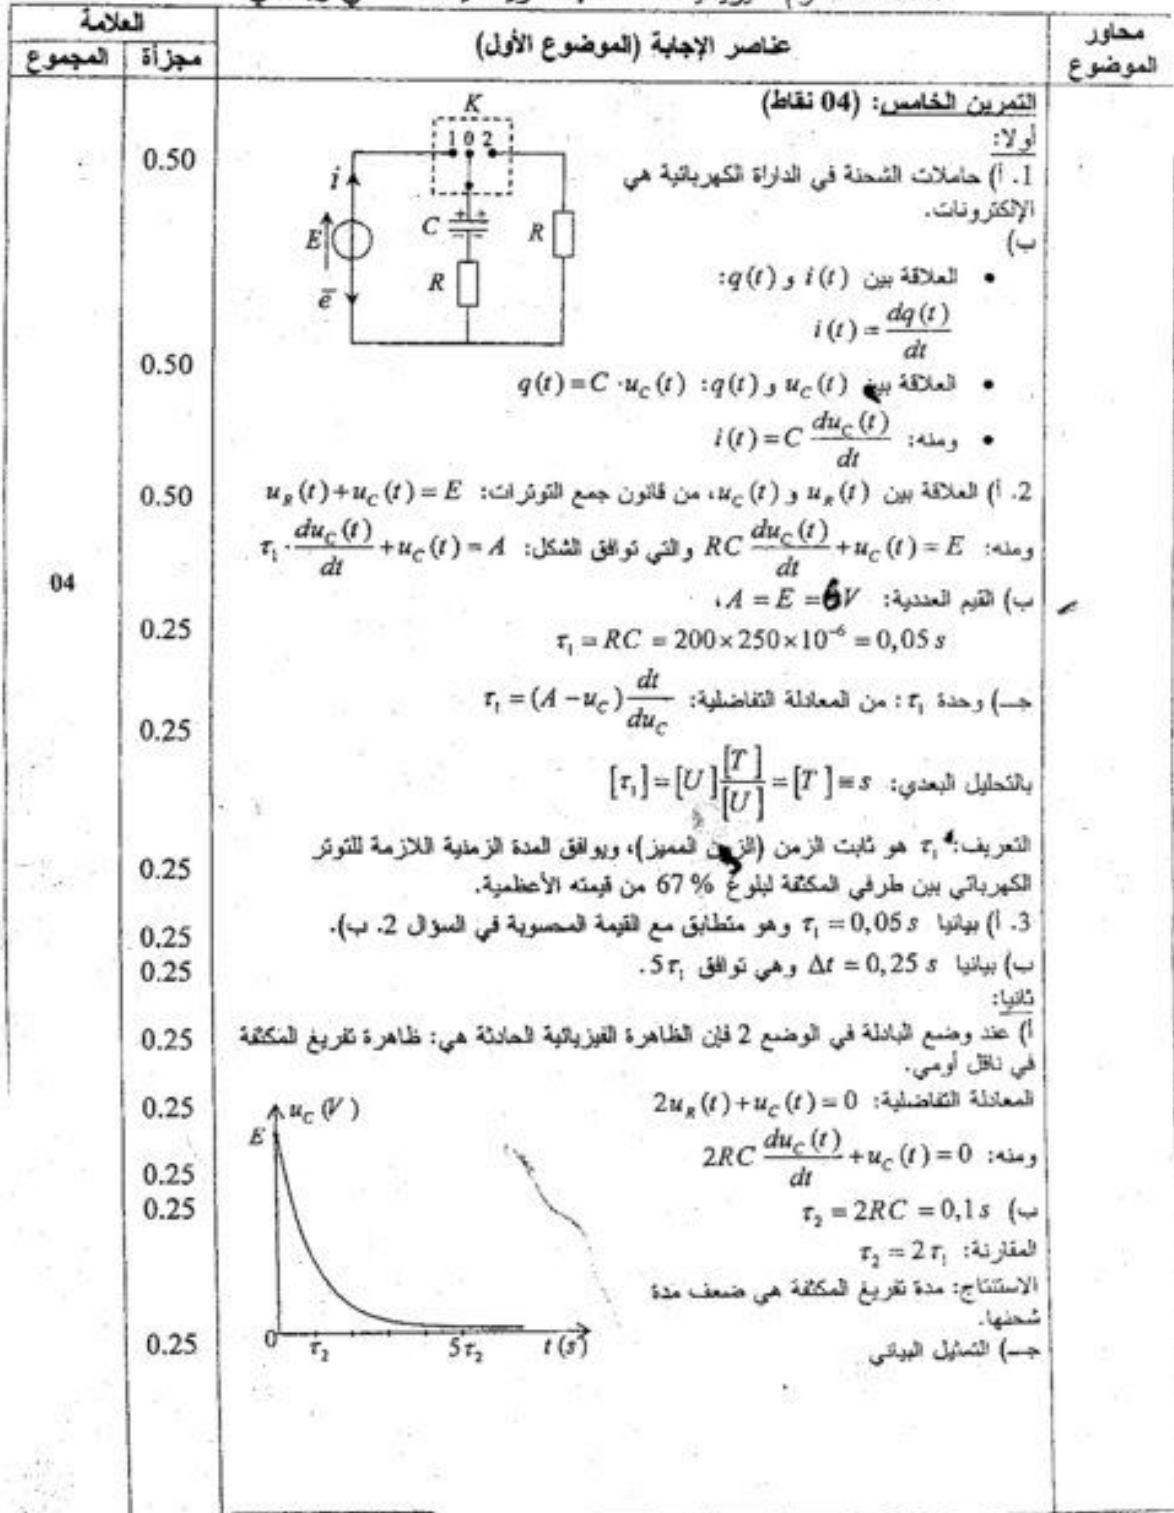 محاور الموضوع
عناصر الإجابة (الموضوع الأول)
العلامة
مجزأة
المجموع
التمرين الخامس: (04 نقاط)
أولا:
1. أ) حاملات الشحنة في الدارة الكهربائية هي
الإلكترونات.
ب)
• العلاقة بين i(t) و q(t):
i(t) = dq(t)/dt
• العلاقة بين u_C(t) و q(t): q(t) = C · u_C(t)
• ومنه: i(t) = C du_C(t)/dt
2. أ) العلاقة بين u_R(t) و u_C(t)، من قانون جمع التوترات: u_R(t) + u_C(t) = E
ومنه: RC du_C(t)/dt + u_C(t) = E والتي توافق الشكل: τ₁ · du_C(t)/dt + u_C(t) = A
ب) القيم العددية: A = E = 6V،
τ₁ = RC = 200 × 250 × 10⁻⁶ = 0,05 s
جـ) وحدة τ₁: من المعادلة التفاضلية: τ₁ = (A − u_C) dt/du_C
بالتحليل البعدي: [τ₁] = [U] [T]/[U] = [T] ≡ s
التعريف: τ₁ هو ثابت الزمن (الزمن المميز)، ويوافق المدة الزمنية اللازمة للتوتر
الكهربائي بين طرفي المكثفة لبلوغ 67 % من قيمته الأعظمية.
3. أ) بيانيا τ₁ = 0,05 s وهو متطابق مع القيمة المحسوبة في السؤال 2. ب).
ب) بيانيا Δt = 0,25 s وهي توافق 5τ₁.
ثانيا:
أ) عند وضع البادلة في الوضع 2 فإن الظاهرة الفيزيائية الحادثة هي: ظاهرة تفريغ المكثفة
في ناقل أومي.
المعادلة التفاضلية: 2u_R(t) + u_C(t) = 0
ومنه: 2RC du_C(t)/dt + u_C(t) = 0
ب) τ₂ = 2RC = 0,1 s
المقارنة: τ₂ = 2τ₁
الاستنتاج: مدة تفريغ المكثفة هي ضعف مدة
شحنها.
جـ) التمثيل البياني
K
1 0 2
i
E
e⁻
C
R
R
u_C (V)
E
0
τ₂
5τ₂
t (s)
0.50
0.50
0.50
0.25
0.25
0.25
0.25
0.25
0.25
0.25
0.25
0.25
0.25
04